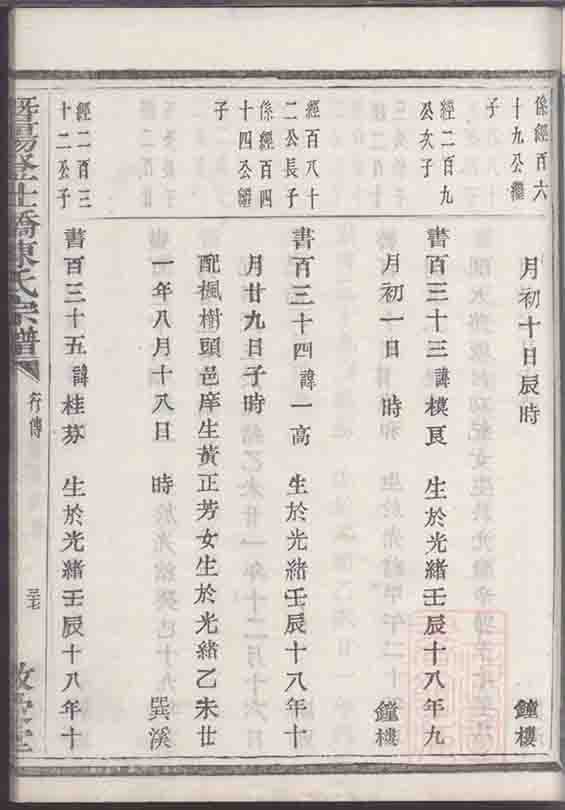 係經百六
十九公繼
子
月初十日辰時
鐘樓
經二百九
公次子
書百三十三諱樸良　生於光緒壬辰十八年九
月初一日　時
鐘樓
經百八十
二公長子
係經百四
十四公繼
子
書百三十四諱一高　生於光緒壬辰十八年十
月廿九日子時
配楓樹頭邑庠生黃正芳女生於光緒乙未廿
一年八月十八日　時
巽溪
經二百三
十二公子
書百三十五諱桂芬　生於光緒壬辰十八年十
暨陽
橋陳氏宗譜
行傳